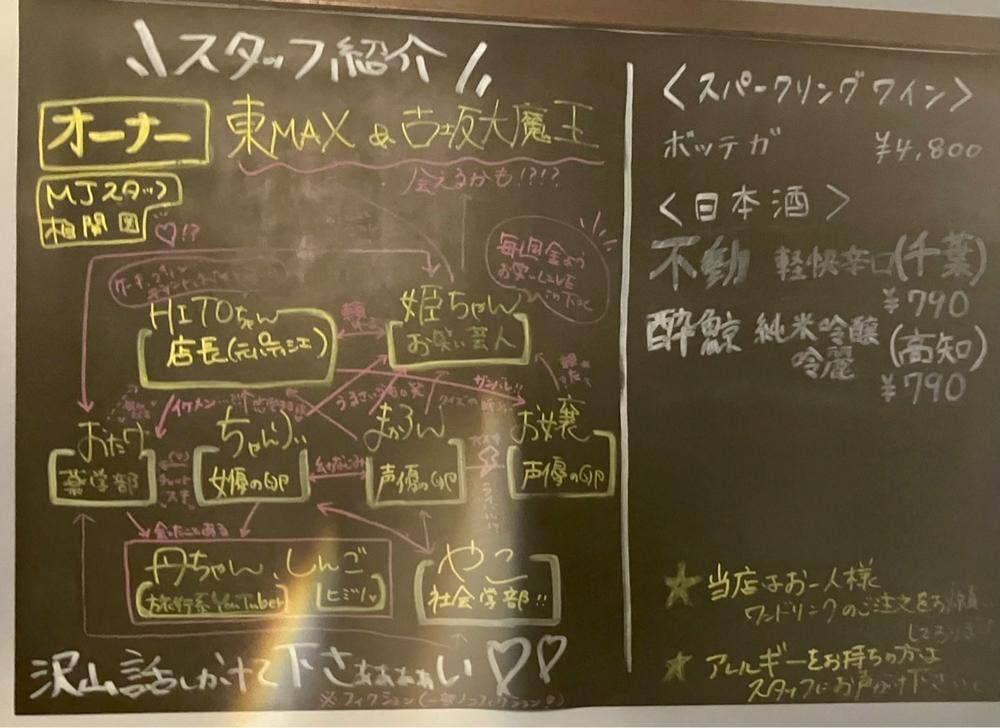 スタッフ紹介
オーナー 東MAX & 古坂大魔王
会えるかも!?!?
MJスタッフ
相関図
♡!?
毎週金曜
HITOちゃん
店長(元パティシエ)
姫ちゃん
お笑い芸人
イケメン
うるさい
クイズの
おたけ
薬学部
ちゃんりぃ
女優の卵
まろん
声優の卵
お嬢
声優の卵
会ったことある
丹ちゃん、しんご
旅行系YouTuber
ヒミツ♡
やこ
社会学部!!
沢山話しかけて下さぁぁぁぁい♡♡
※フィクション(一部ノンフィクション
<スパークリングワイン>
ボッテガ ¥4,800
<日本酒>
不動 軽快辛口(千葉)
¥790
酔鯨 純米吟醸(高知)
冷麗
¥790
★当店はお一人様
ワンドリンクのご注文をお願い
しております
★アレルギーをお持ちの方は
スタッフにお声がけ下さい